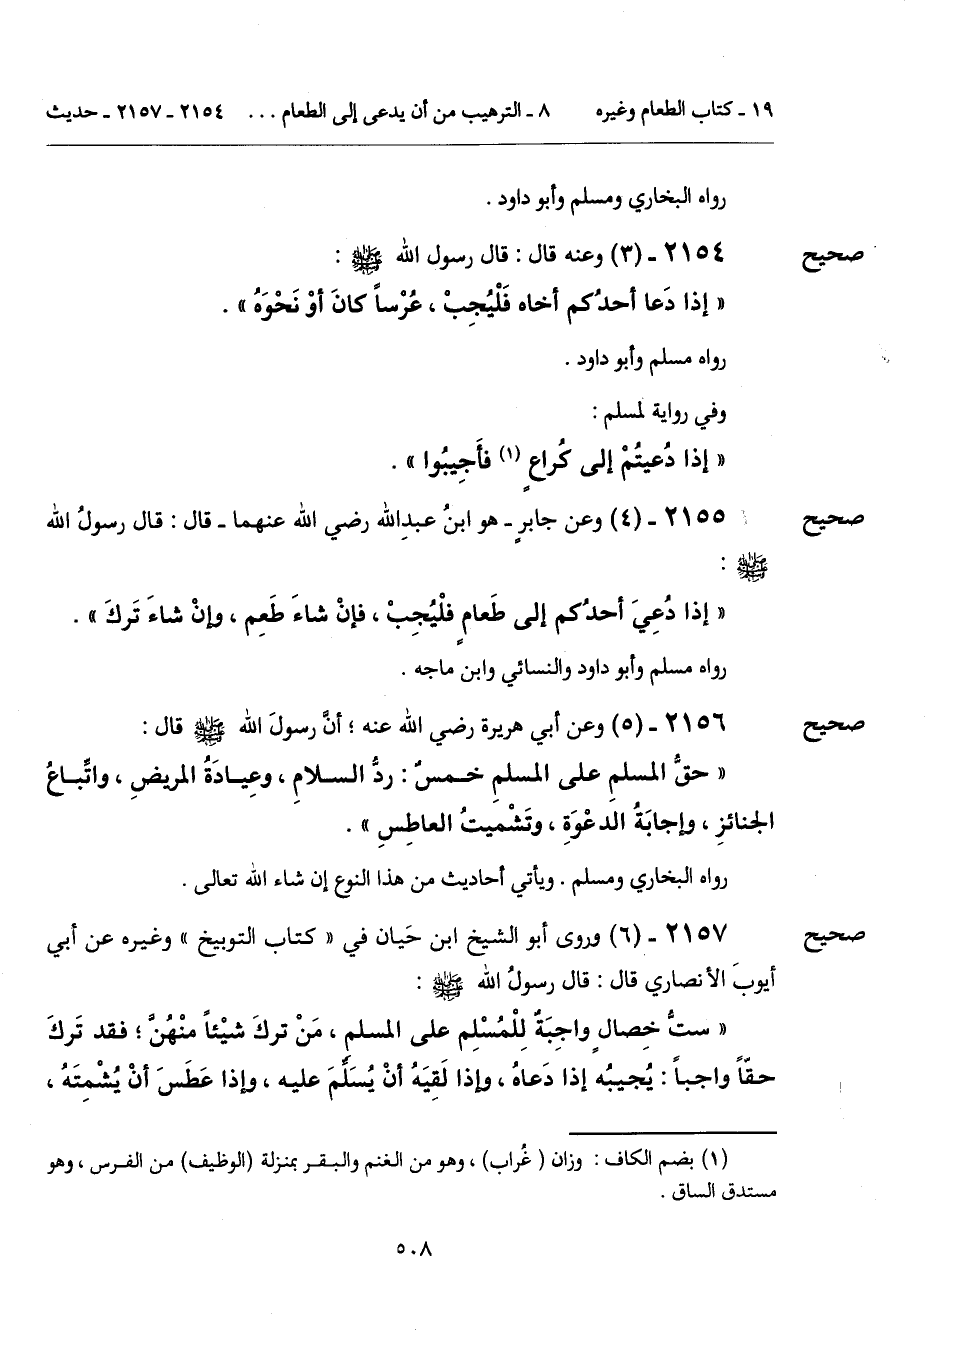 ١٩ ـ كتاب الطعام وغيره ٨ ـ الترهيب من أن يدعى إلى الطعام . . . ٢١٥٤ ـ ٢١٥٧ ـ حديث
رواه البخاري ومسلم وأبو داود .
صحيح ٢١٥٤ ـ (٣) وعنه قال : قال رسول الله ﷺ :
« إذا دَعا أحدُكم أخاه فَلْيُجِبْ ، عُرْساً كانَ أوْ نَحْوَهُ » .
رواه مسلم وأبو داود .
وفي رواية لمسلم :
« إذا دُعيتُمْ إلى كُراعٍ (١) فأَجِيبُوا » .
صحيح ٢١٥٥ ـ (٤) وعن جابرٍ ـ هو ابنُ عبدِالله رضي الله عنهما ـ قال : قال رسولُ الله
ﷺ :
« إذا دُعِيَ أحدُكم إلى طَعامٍ فلْيُجِبْ ، فإنْ شاءَ طَعِم ، وإنْ شاءَ تَركَ » .
رواه مسلم وأبو داود والنسائي وابن ماجه .
صحيح ٢١٥٦ ـ (٥) وعن أبي هريرة رضي الله عنه ؛ أنَّ رسولَ الله ﷺ قال :
« حقُّ المسلمِ على المسلمِ خمسٌ : ردُّ السلامِ ، وعِيادَةُ المريضِ ، واتِّباعُ
الجنائزِ ، وإجابَةُ الدعْوَةِ ، وتَشْميتُ العاطِسِ » .
رواه البخاري ومسلم . ويأتي أحاديث من هذا النوع إن شاء الله تعالى .
صحيح ٢١٥٧ ـ (٦) وروى أبو الشيخ ابن حَيان في « كتاب التوبيخ » وغيره عن أبي
أيوبَ الأنصاري قال : قال رسولُ الله ﷺ :
« ستُّ خِصالٍ واجِبَةٌ لِلْمُسْلِمِ على المسلمِ ، مَنْ تركَ شيْئاً منْهُنَّ ؛ فقد تَركَ
حقّاً واجباً : يُجيبُه إذا دَعاهُ ، وإذا لَقِيَهُ أنْ يُسَلِّمَ عليه ، وإذا عَطَسَ أنْ يُشْمِتَهُ ،
(١) بضم الكاف : وزان ( غُراب) ، وهو من الغنم والبقر بمنزلة (الوظيف) من الفرس ، وهو
مستدق الساق .
٥٠٨